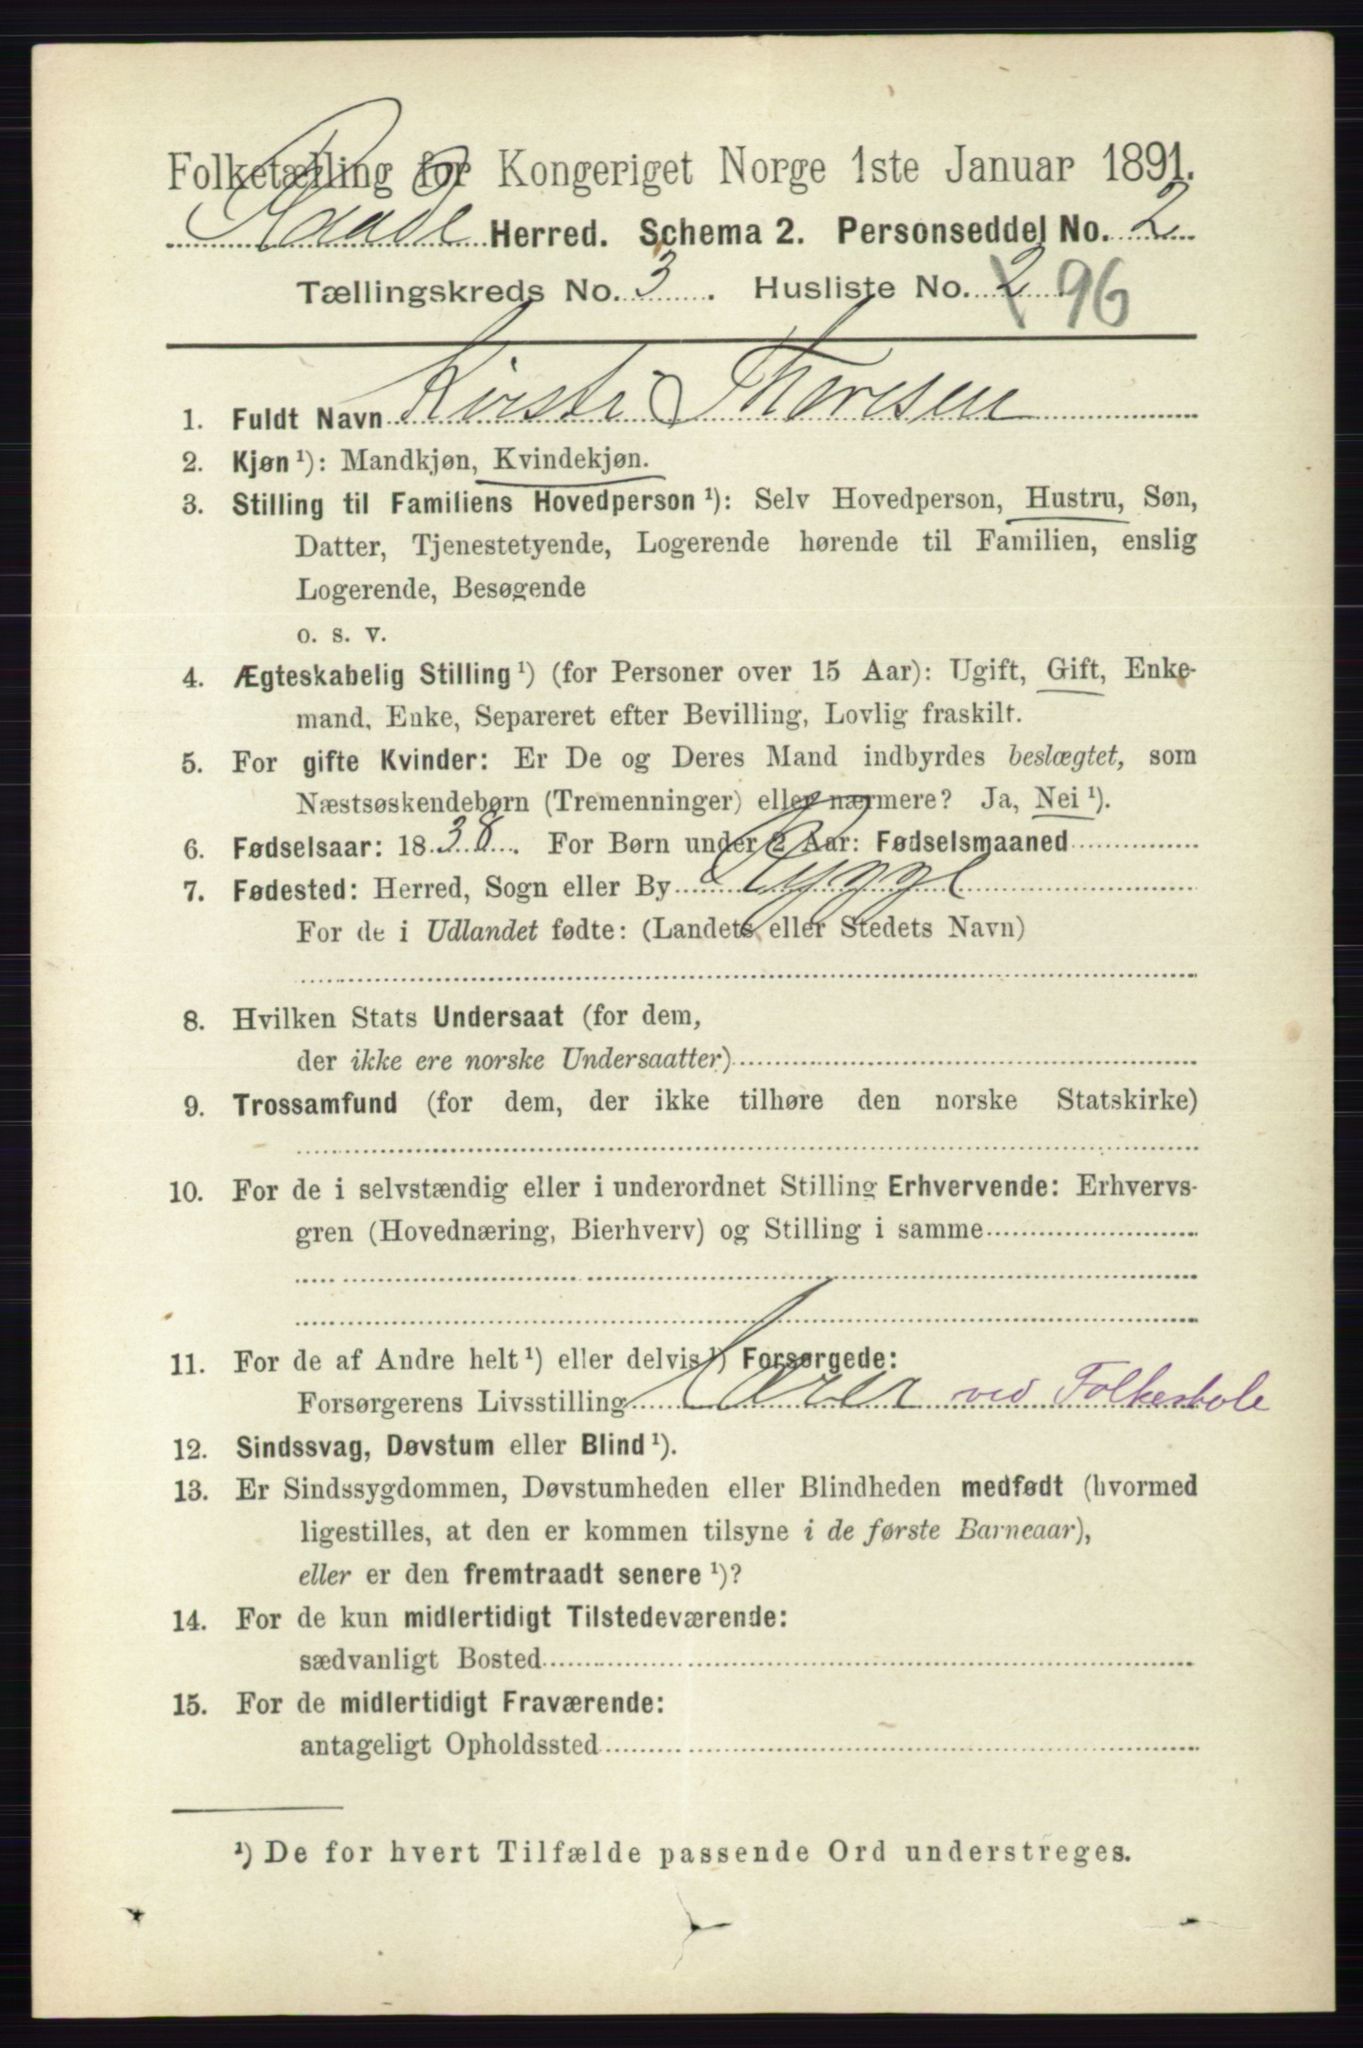 Folketælling for Kongeriget Norge 1ste Januar 1891.
Raade Herred. Schema 2. Personseddel No. 2
Tællingskreds No. 3. Husliste No. 2 96
1. Fuldt Navn Kirsti Thoresen
2. Kjøn ¹): Mandkjøn, Kvindekjøn.
3. Stilling til Familiens Hovedperson ¹): Selv Hovedperson, Hustru, Søn,
Datter, Tjenestetyende, Logerende hørende til Familien, enslig
Logerende, Besøgende
o. s. v.
4. Ægteskabelig Stilling ¹) (for Personer over 15 Aar): Ugift, Gift, Enke-
mand, Enke, Separeret efter Bevilling, Lovlig fraskilt.
5. For gifte Kvinder: Er De og Deres Mand indbyrdes beslægtet, som
Næstsøskendebørn (Tremenninger) eller nærmere? Ja, Nei ¹).
6. Fødselsaar: 1838. For Børn under 2 Aar: Fødselsmaaned
7. Fødested: Herred, Sogn eller By Rygge
For de i Udlandet fødte: (Landets eller Stedets Navn)
8. Hvilken Stats Undersaat (for dem,
der ikke ere norske Undersaatter)
9. Trossamfund (for dem, der ikke tilhøre den norske Statskirke)
10. For de i selvstændig eller i underordnet Stilling Erhvervende: Erhvervs-
gren (Hovednæring, Bierhverv) og Stilling i samme
11. For de af Andre helt ¹) eller delvis ¹) Forsørgede:
Forsørgerens Livsstilling Lærer ved Folkeskole
12. Sindssvag, Døvstum eller Blind ¹).
13. Er Sindssygdommen, Døvstumheden eller Blindheden medfødt (hvormed
ligestilles, at den er kommen tilsyne i de første Barneaar),
eller er den fremtraadt senere ¹)?
14. For de kun midlertidigt Tilstedeværende:
sædvanligt Bosted
15. For de midlertidigt Fraværende:
antageligt Opholdssted
¹) De for hvert Tilfælde passende Ord understreges.